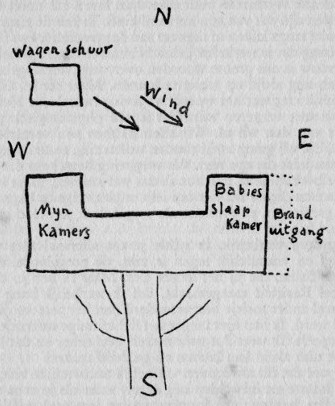 N
Wagen schuur
Wind
W
E
Myn
Kamers
Babies
Slaap
Kamer
Brand
uitgang
S